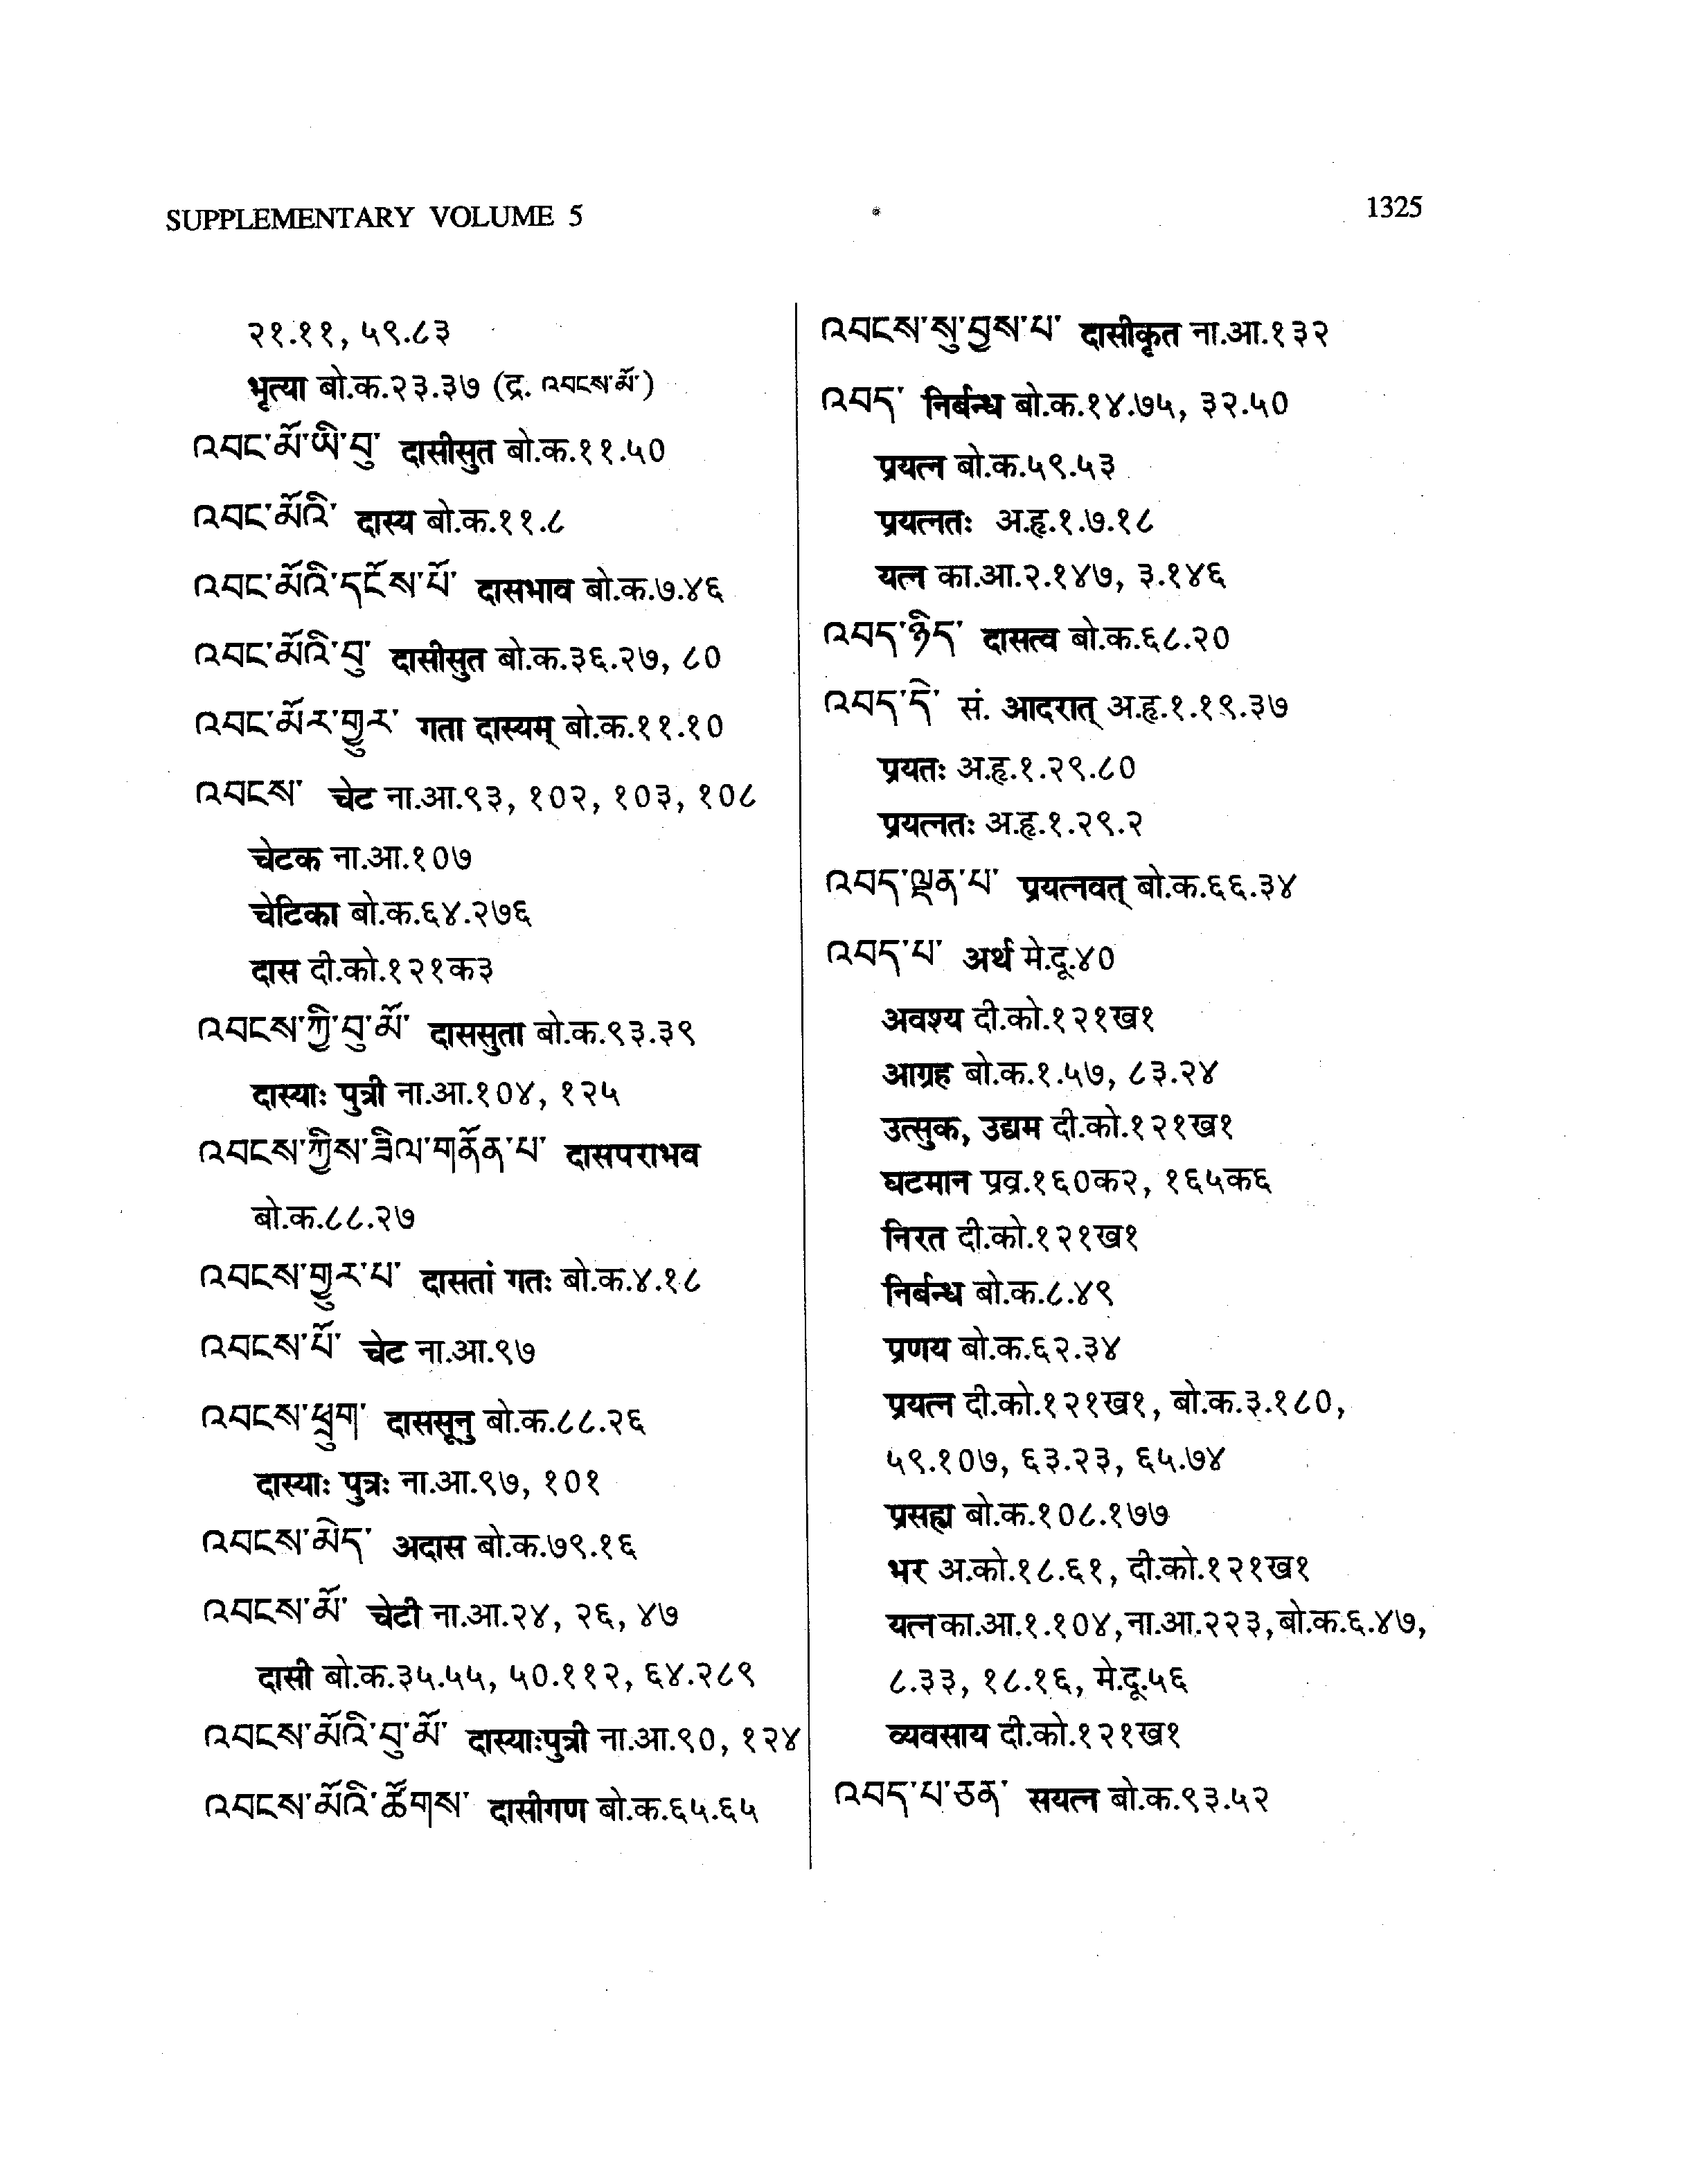 SUPPLEMENTARY VOLUME 5
1325
२१.११, ५९.८३
भृत्या बो.क.२३.३७ (द्र. འབངས་མོ་)
འབང་མོ་ཡི་བུ་ दासीसुत बो.क.११.५०
འབང་མོའི་ दास्य बो.क.११.८
འབང་མོའི་དངོས་པོ་ दासभाव बो.क.७.४६
འབང་མོའི་བུ་ दासीसुत बो.क.३६.२७, ८०
འབང་མོར་གྱུར་ गता दास्यम् बो.क.११.१०
འབངས་ चेट ना.आ.९३, १०२, १०३, १०८
चेटक ना.आ.१०७
चेटिका बो.क.६४.२७६
दास दी.को.१२१क३
འབངས་ཀྱི་བུ་མོ་ दाससुता बो.क.९३.३९
दास्याः पुत्री ना.आ.१०४, १२५
འབངས་ཀྱིས་ཟིལ་གནོན་པ་ दासपराभव
बो.क.८८.२७
འབངས་གྱུར་པ་ दासतां गतः बो.क.४.१८
འབངས་པོ་ चेट ना.आ.९७
འབངས་ཕྲུག་ दाससूनु बो.क.८८.२६
दास्याः पुत्रः ना.आ.९७, १०१
འབངས་མེད་ अदास बो.क.७९.१६
འབངས་མོ་ चेटी ना.आ.२४, २६, ४७
दासी बो.क.३५.५५, ५०.११२, ६४.२८९
འབངས་མོའི་བུ་མོ་ दास्याःपुत्री ना.आ.९०, १२४
འབངས་མོའི་ཚོགས་ दासीगण बो.क.६५.६५
འབངས་སུ་བྱས་པ་ दासीकृत ना.आ.१३२
འབད་ निर्बन्ध बो.क.१४.७५, ३२.५०
प्रयत्न बो.क.५९.५३
प्रयत्नतः अ.हृ.१.७.१८
यत्न का.आ.२.१४७, ३.१४६
འབད་ཉིད་ दासत्व बो.क.६८.२०
འབད་དེ་ सं. आदरात् अ.हृ.१.१९.३७
प्रयतः अ.हृ.१.२९.८०
प्रयत्नतः अ.हृ.१.२९.२
འབད་ལྡན་པ་ प्रयत्नवत् बो.क.६६.३४
འབད་པ་ अर्थ मे.दू.४०
अवश्य दी.को.१२१ख१
आग्रह बो.क.१.५७, ८३.२४
उत्सुक, उद्यम दी.को.१२१ख१
घटमान प्रव्र.१६०क२, १६५क६
निरत दी.को.१२१ख१
निर्बन्ध बो.क.८.४९
प्रणय बो.क.६२.३४
प्रयत्न दी.को.१२१ख१, बो.क.३.१८०,
५९.१०७, ६३.२३, ६५.७४
प्रसह्य बो.क.१०८.१७७
भर अ.को.१८.६१, दी.को.१२१ख१
यत्न का.आ.१.१०४, ना.आ.२२३, बो.क.६.४७,
८.३३, १८.१६, मे.दू.५६
व्यवसाय दी.को.१२१ख१
འབད་པ་ཅན་ सयत्न बो.क.९३.५२